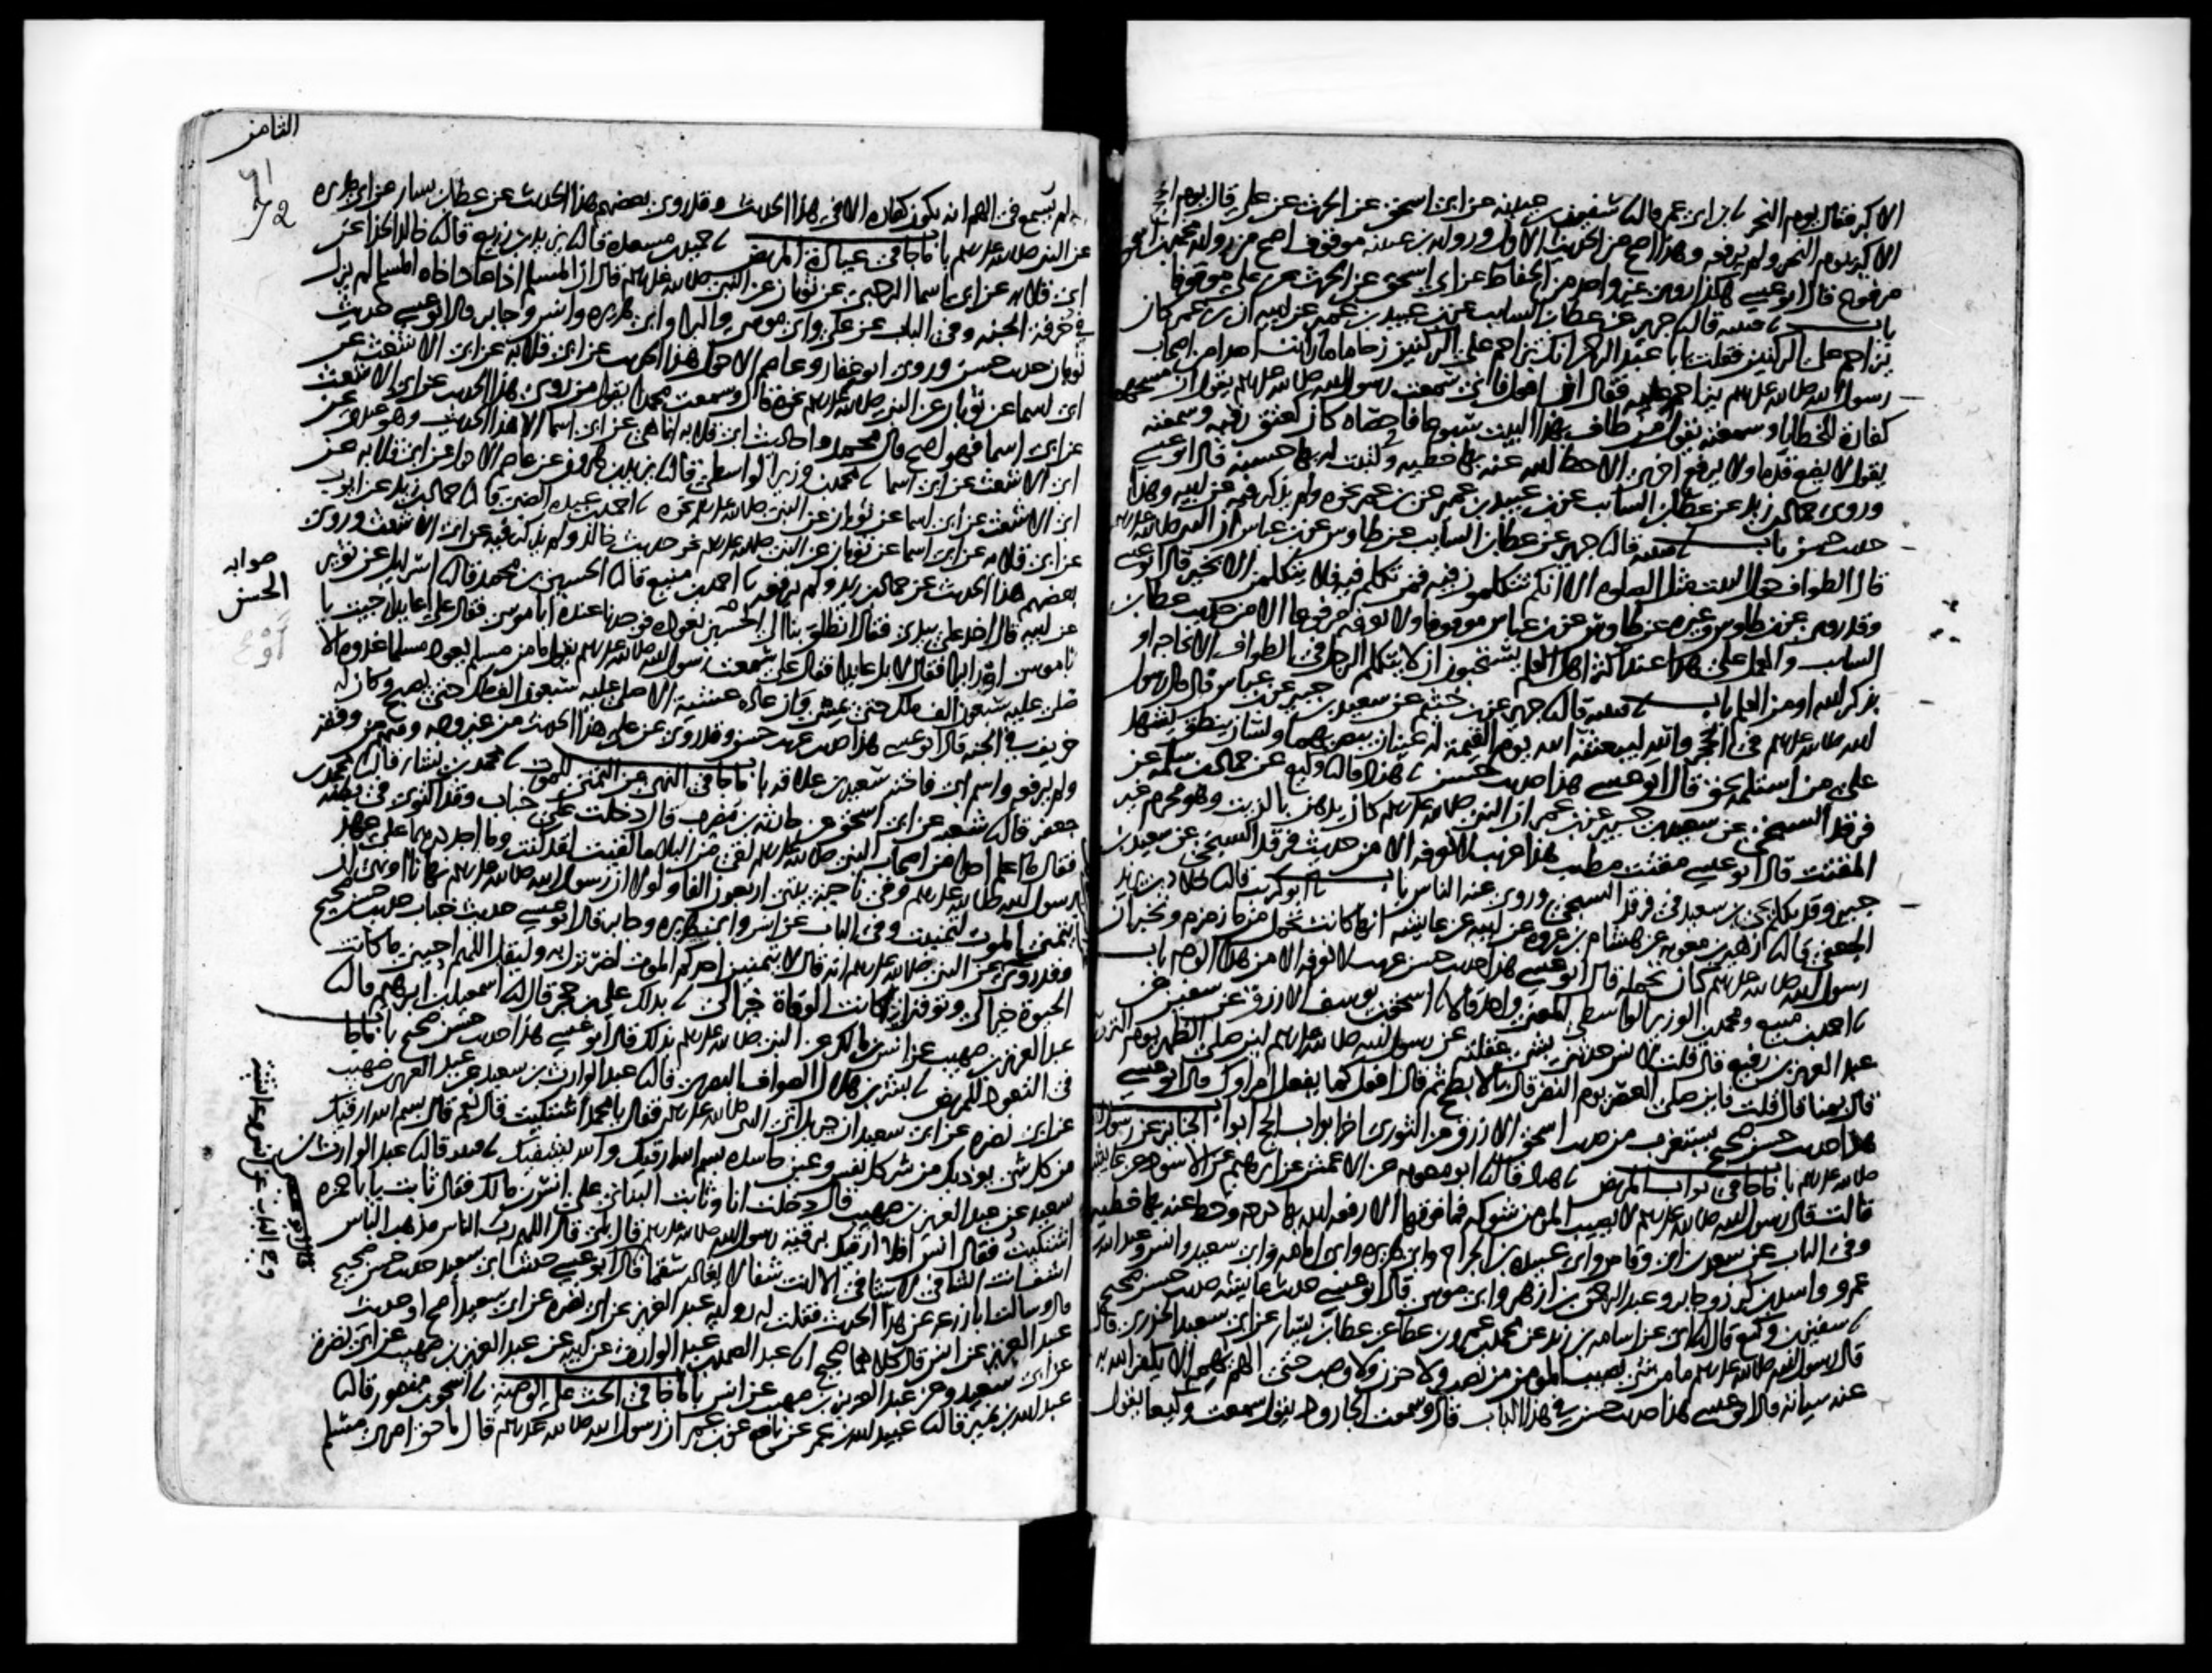 الاكبر فقال يوم النحر ابن ابي عمر قال سفين بن عيينه عن ابي اسحق عن الحرث عن علي قال يوم الحج
الاكبر يوم النحر ولم يرفعه وهذا اصح من الحديث الاول ورواية بن عيينه موقوف اصح من رواية محمد بن اسحق
مرفوع قال ابو عيسى هكذا روى غير واحد من الحفاظ عن ابي اسحق عن الحرث عن علي موقوفا
باب قتيبه قال جرير عن عطا بن السايب عن بن عبيد بن عمير عن ابيه ان بن عمر كان
يزاحم على الركنين فقلت يابا عبد الرحمن انك تزاحم على الركنين زحاما ما رايت احدا من اصحاب
رسول الله صلى الله عليه وسلم يزاحم عليه فقال ان افعل فاني سمعت رسول الله صلى الله عليه وسلم يقول ان مسحهما
كفارة للخطايا وسمعته يقول من طاف بهذا البيت سبوعا فاحصاه كان كعتق رقبه وسمعته
يقول لا يضع قدما ولا يرفع اخرى الا حط الله عنه بها خطيه وكتبت له بها حسنه قال ابو عيسى
وروى حماد بن زيد عن عطا بن السايب عن بن عبيد بن عمير عن بن عمر نحوه ولم يذكر فيه عن ابيه وهذا
حديث حسن باب قتيبه قال جرير عن عطا بن السايب عن طاوس عن بن عباس ان النبي صلى الله عليه وسلم
قال الطواف حول البيت مثل الصلوه الا انكم تتكلمون فيه فمن تكلم فيه فلا يتكلمن الا بخير قال ابو عيسى
وقد روى عن بن طاوس وغيره عن طاوس عن بن عباس موقوفا ولا نعرفه مرفوعا الا من حديث عطا بن
السايب والعمل على هذا عند اكثر اهل العلم يستحبون ان لا يتكلم الرجل في الطواف الا لحاجه او
بذكر الله او من العلم باب قتيبه قال جرير عن بن خثيم عن سعيد بن جبير عن بن عباس قال قال رسول
الله صلى الله عليه وسلم في الحجر والله ليبعثنه الله يوم القيمة له عينان يبصر بهما ولسان ينطق يشهد
على من استلمه بحق قال ابو عيسى هذا حديث حسن هناد قال وكيع عن حماد بن سلمه عن
فرقد السبخي عن سعيد بن جبير عن بن عمر ان النبي صلى الله عليه وسلم كان يدهن بالزيت وهو محرم غير
المقتت قال ابو عيسى مقتت مطيب هذا غريب لا نعرفه الا من حديث فرقد السبخي عن سعيد بن
جبير وقد تكلم يحيى بن سعيد في فرقد السبخي وروى عنه الناس باب ابو كريب قال خلاد بن يزيد
الجعفي قال زهير بن معويه عن هشام بن عروه عن ابيه عن عايشه انها كانت تحمل من ما زمزم وتخبر ان
رسول الله صلى الله عليه وسلم كان يحمله قال ابو عيسى هذا حديث حسن غريب لا نعرفه الا من هذا الوجه باب
احمد بن منيع ومحمد بن الوزير الواسطي المعنى واحد قالا اسحق بن يوسف الازرق عن سفين عن
عبد العزيز بن رفيع قال قلت لانس حدثني بشي عقلته عن رسول الله صلى الله عليه وسلم اين صلى الظهر يوم التروية
قال بمنا قال قلت فاين صلى العصر يوم النفر قال بالابطح ثم قال افعل كما يفعل امراوك قال ابو عيسى
هذا حديث حسن صحيح يستغرب من حديث اسحق الازرق عن الثوري اخر ابواب الحج ابواب الجنايز عن رسول الله
صلى الله عليه وسلم باب ما جا في ثواب المريض هناد قال ابو معويه عن الاعمش عن ابرهيم عن الاسود عن عايشه
قالت قال رسول الله صلى الله عليه وسلم لا يصيب المومن شوكه فما فوقها الا رفعه الله بها درجه وحط عنه بها خطيه
وفي الباب عن سعد بن ابي وقاص وابي عبيده بن الجراح وابي هريره وابي امامه وابي سعيد وانس وعبد الله بن
عمرو واسد بن كرز وجابر وعبد الرحمن بن ازهر وابي موسى قال ابو عيسى حديث عايشه حديث حسن صحيح
سفين بن وكيع قال ابي عن اسامه بن زيد عن محمد بن عمرو بن عطا عن عطا بن يسار عن ابي سعيد الخدري قال
قال رسول الله صلى الله عليه وسلم ما من شي يصيب المومن من نصب ولا حزن ولا وصب حتى الهم يهمه الا يكفر الله به
عنه سياته قال ابو عيسى هذا حديث حسن في هذا الباب قال وسمعت الجارود يقول سمعت وكيعا يقول
الثامن
71
72
لم يسمع في الهم انه يكون كفاره الا في هذا الحديث وقد روى بعضهم هذا الحديث عن عطا بن يسار عن ابي هريره
عن النبي صلى الله عليه وسلم باب ما جا في عيادة المريض حميد بن مسعدة قال يزيد بن زريع قال خالد الحذا عن
ابي قلابه عن ابي اسما الرحبي عن ثوبان عن النبي صلى الله عليه وسلم قال ان المسلم اذا عاد اخاه المسلم لم يزل
في خرفة الجنه وفي الباب عن علي وابي موسى والبرا وابي هريره وانس وجابر قال ابو عيسى حديث
ثوبان حديث حسن وروى ابو غفار وعاصم الاحول هذا الحديث عن ابي قلابه عن ابي الاشعث عن
ابي اسما عن ثوبان عن النبي صلى الله عليه وسلم نحوه قال وسمعت محمدا يقول من روى هذا الحديث عن ابي الاشعث
عن ابي اسما فهو اصح قال محمد واحاديث ابي قلابه انما هي عن ابي اسما الا هذا الحديث وهو عندي عن
ابي الاشعث عن ابي اسما محمد بن وزير الواسطي قال يزيد بن هرون عن عاصم الاحول عن ابي قلابه عن
ابي الاشعث عن ابي اسما عن ثوبان عن النبي صلى الله عليه وسلم نحوه احمد بن عبده الضبي قال حماد بن زيد عن ايوب
عن ابي قلابه عن ابي اسما عن ثوبان عن النبي صلى الله عليه وسلم نحو حديث خالد ولم يذكر فيه عن ابي الاشعث وروى
بعضهم هذا الحديث عن حماد بن زيد ولم يرفعه احمد بن منيع قال الحسين بن محمد قال اسرايل عن ثوير
عن ابيه قال اخذ علي بيدي فقال انطلق بنا الى الحسين نعوده فوجدنا عنده ابا موسى فقال علي اعايدا جيت يا
ابا موسى ام زايرا فقال لا بل عايدا فقال علي سمعت رسول الله صلى الله عليه وسلم يقول ما من مسلم يعود مسلما غدوه الا
صلى عليه سبعون الف ملك حتى يمسي وان عاده عشية الا صلى عليه سبعون الف ملك حتى يصبح وكان له
خريف في الجنه قال ابو عيسى هذا حديث غريب حسن وقد روى عن علي هذا الحديث من غير وجه ومنهم من وقفه
ولم يرفعه واسم ابي فاخته سعيد بن علاقه باب ما جا في النهي عن التمني للموت محمد بن بشار قال محمد بن
جعفر قال شعبه عن ابي اسحق عن حارثه بن مضرب قال دخلت على خباب وقد اكتوى في بطنه
فقال ما اعلم احدا من اصحاب النبي صلى الله عليه وسلم لقي من البلا ما لقيت لقد كنت وما اجد درهما على عهد
رسول الله صلى الله عليه وسلم وفي ناحية بيتي اربعون الفا ولولا ان رسول الله صلى الله عليه وسلم نهانا او نهى ان
يتمنى الموت لتمنيت وفي الباب عن انس وابي هريره وجابر قال ابو عيسى حديث خباب حديث حسن صحيح
وقد روى عن النبي صلى الله عليه وسلم انه قال لا يتمنين احدكم الموت لضر نزل به وليقل اللهم احيني ما كانت
الحيوة خيرا لي وتوفني اذا كانت الوفاة خيرا لي بذلك علي بن حجر قال اسمعيل بن ابرهيم قال
عبد العزيز بن صهيب عن انس بن مالك عن النبي صلى الله عليه وسلم بذلك قال ابو عيسى هذا حديث حسن صحيح باب ما جا
في التعوذ للمريض بشر بن هلال الصواف البصري قال عبد الوارث بن سعيد عن عبد العزيز بن صهيب
عن ابي نضره عن ابي سعيد ان جبريل اتى النبي صلى الله عليه وسلم فقال يا محمد اشتكيت قال نعم قال بسم الله ارقيك
من كل شي يوذيك من شر كل نفس وعين حاسده بسم الله ارقيك والله يشفيك قتيبه قال عبد الوارث بن
سعيد عن عبد العزيز بن صهيب قال دخلت انا وثابت البناني على انس بن مالك فقال ثابت يابا حمزه
اشتكيت فقال انس افلا ارقيك برقية رسول الله صلى الله عليه وسلم قال بلى قال اللهم رب الناس مذهب الباس
اشف انت الشافي لا شافي الا انت شفا لا يغادر سقما قال ابو عيسى حديث ابي سعيد حديث حسن صحيح
قال وسالت ابا زرعه عن هذا الحديث فقلت له رواية عبد العزيز عن ابي نضره عن ابي سعيد اصح او حديث
عبد العزيز عن انس قال كلاهما صحيح انا عبد الصمد بن عبد الوارث عن ابيه عن عبد العزيز بن صهيب عن ابي نضره
عن ابي سعيد وعن عبد العزيز بن صهيب عن انس باب ما جا في الحث على الوصية اسحق بن منصور قال
عبد الله بن نمير قال عبيد الله بن عمر عن نافع عن بن عمر ان رسول الله صلى الله عليه وسلم قال ما حق امرئ مسلم
صوابه
الحسن
قال ابو عيسى
وفي الباب عن انس وعايشة